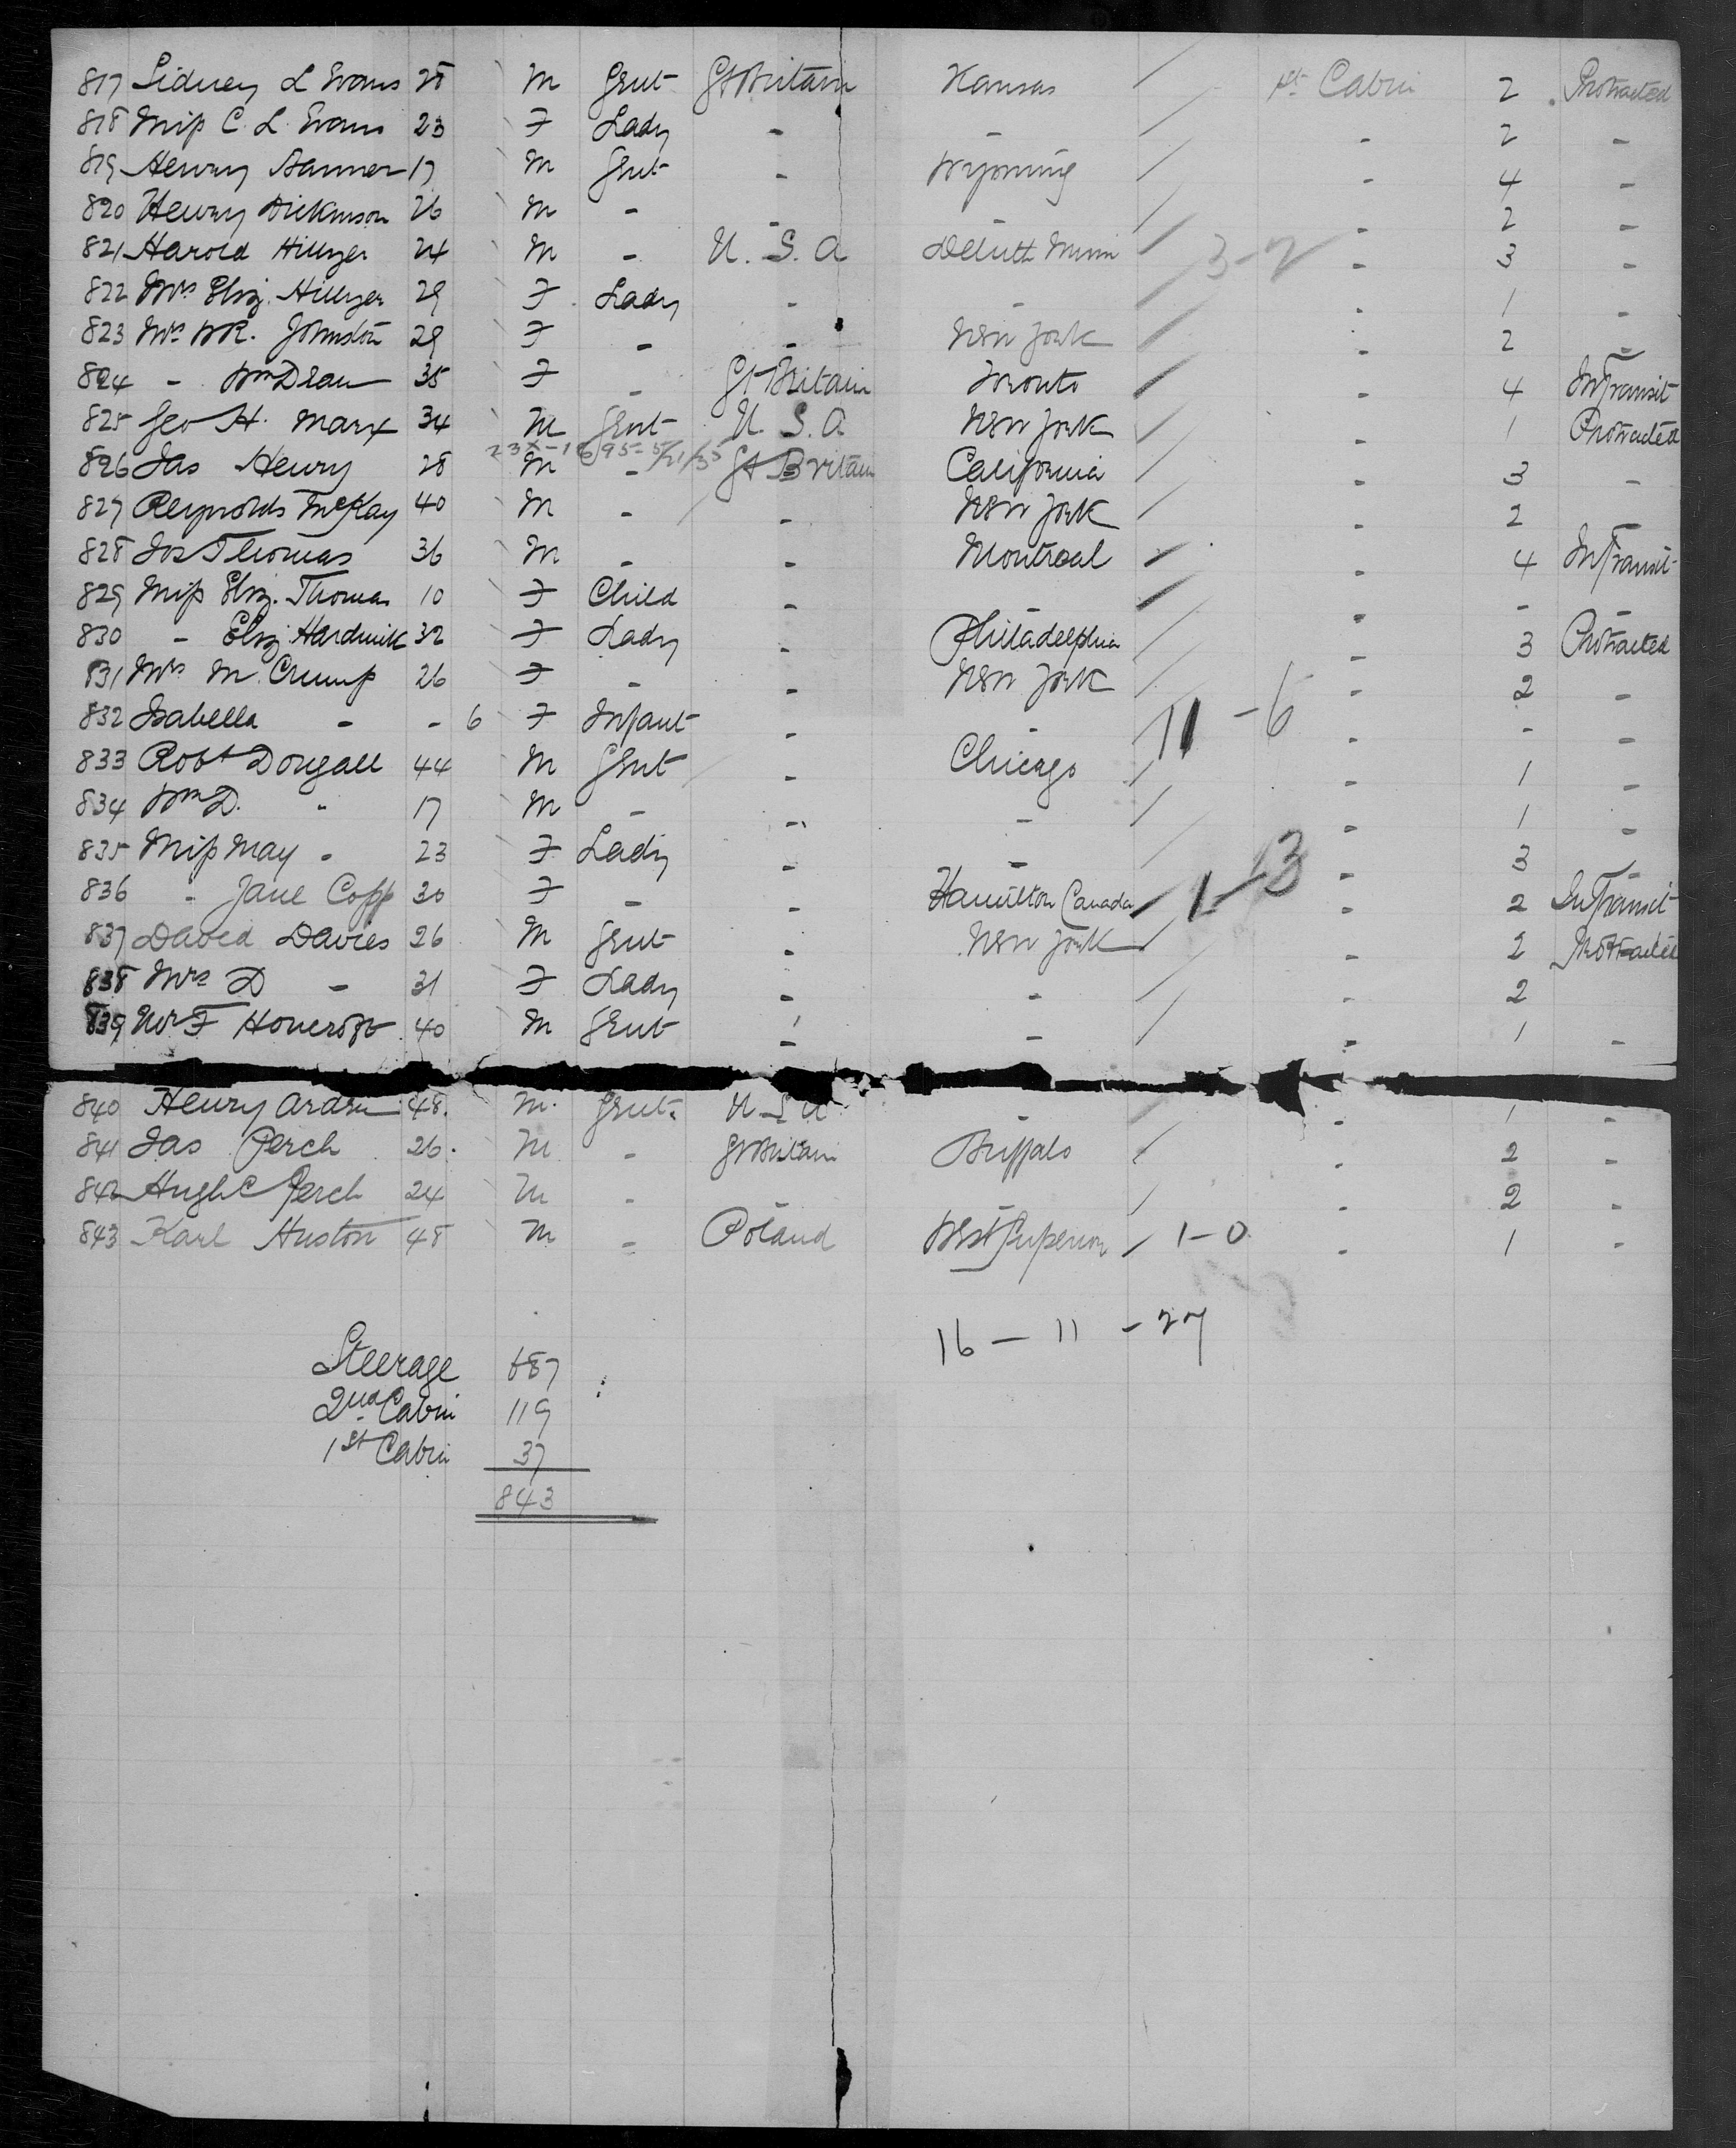 817 Sidney L Evans 28 M Gent Gt Britain Kansas / 1st Cabin 2 Protracted
818 Miss C. L. Evans 23 F Lady - - / - 2 -
819 Henry 17 M Gent - Wyoming / - 4 -
820 Henry Dickinson 26 M - - - / - 2 -
821 Harold Hillyer 24 M - U. S. A Deluth Minn / 3-2 - 3 -
822 Mrs Eliz. Hillyer 29 F Lady - - / - 1 -
823 Mrs W R. Johnston 29 F - - New York / - 2 -
824 - Wm Dean 35 F - Gt Britain Toronto / - 4 InTransit
825 Geo H. Marx 34 M Gent U. S. A New York / - 1 Protracted
826 Jas Henry 28 M - Gt Britain California / - 3 -
827 Reynolds McKay 40 M - - New York / - 2
828 Jos Thomas 36 M - - Montreal / - 4 InTransit
829 Miss Eliz. Thomas 10 F Child - - / - - -
830 - Eliz Hardwick 32 F Lady - Philadelphia / - 3 Protracted
831 Mrs M. Crump 26 F - - New York / - 2 -
832 Isabella - - 6 F Infant - - / 11 - 6 - - -
833 Robt Dougall 44 M Gent - Chicago / - 1 -
834 Wm D. " 17 M - - - / - 1 -
835 Miss May - 23 F Lady - - / - 3 -
836 - Jane Copp 30 F - - Hamilton Canada / 1-3 - 2 InTransit
837 David Davies 26 M Gent - New York / - 2 Protracted
838 Mrs D - 31 F Lady - - / - 2
839 F 40 M Gent - - / - 1 -
840 Henry Arden 48. M. Gent. U S A - / - 1 -
841 Jas Perch 26. M - Gt Britain Buffalo / - 2 -
842 Hugh C Perch 24 M - - - / - 2 -
843 Karl Huston 48 M - Poland West Superior / 1-0 - 1 -
16 - 11 - 27
Steerage 687
2nd Cabin 119
1st Cabin 37
843